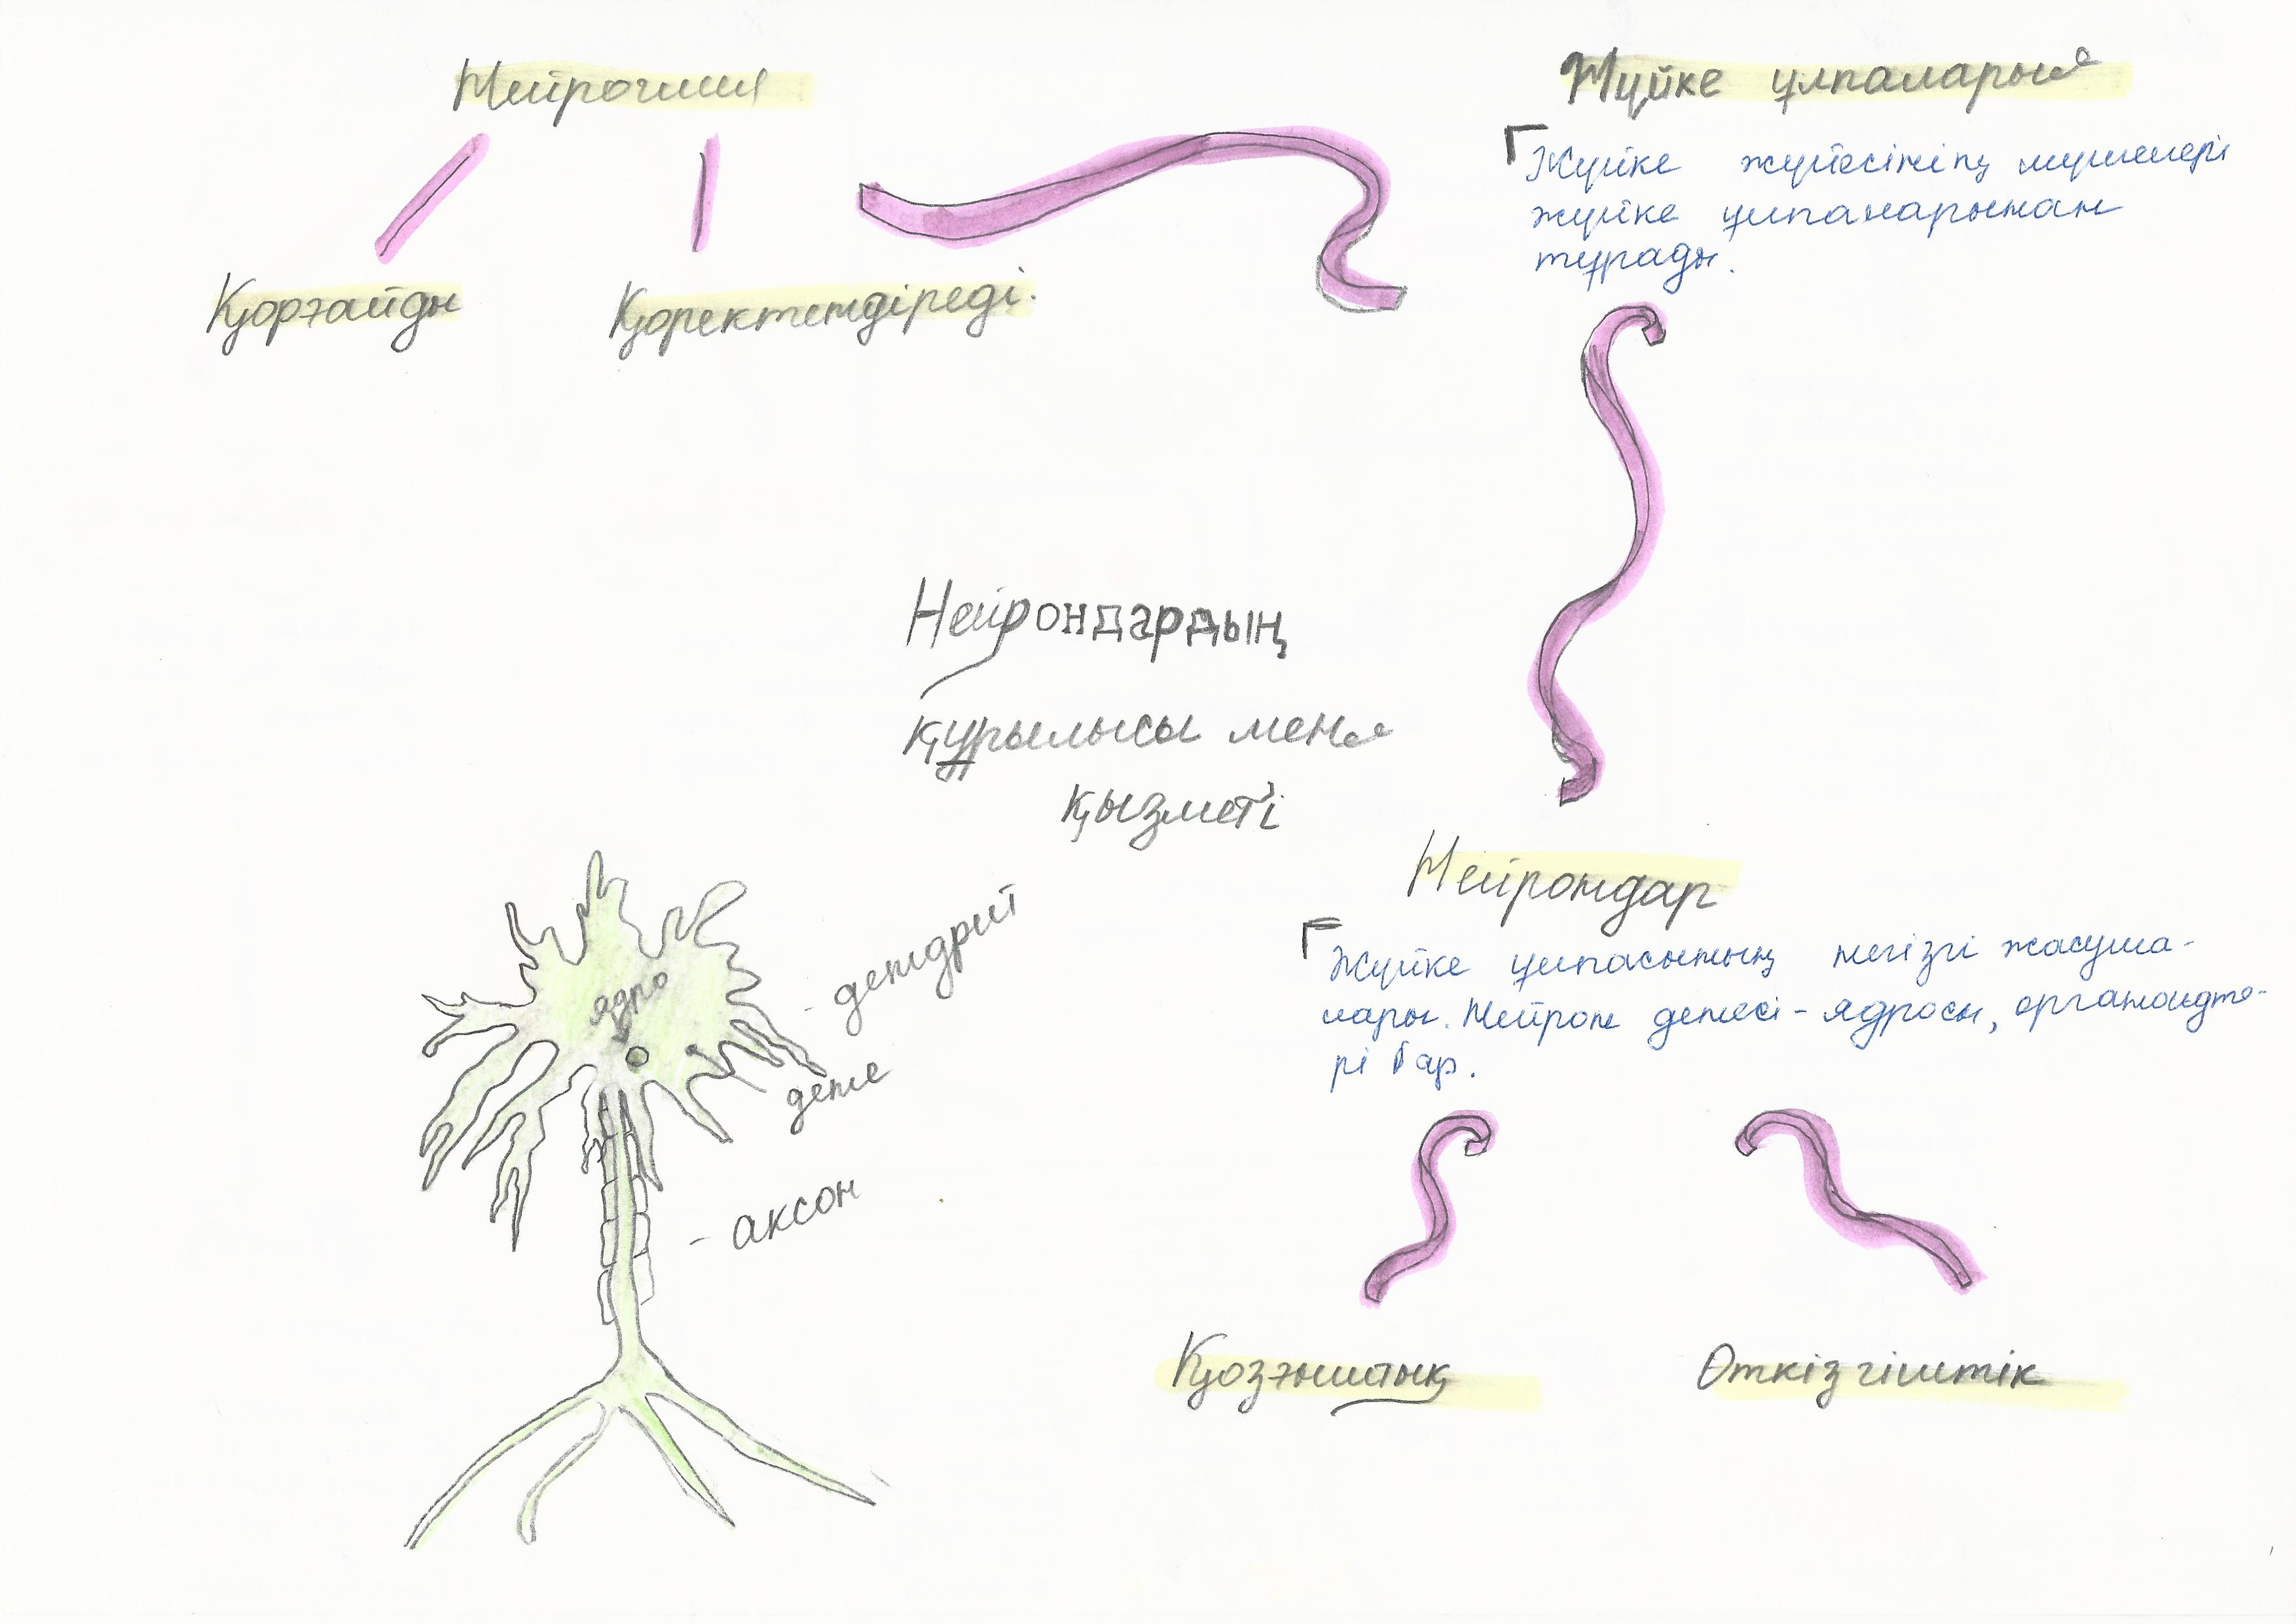 Нейроглия
Қорғайды
Қоректендіреді.
Жүйке ұлпалары
Жүйке жүйесінің мүшелері
жүйке ұлпаларынан
тұрады.
Нейрондардың
құрылысы мен
қызметі
Нейрондар
Жүйке ұлпасының негізгі жасуша-
лары. Нейрон денесі - ядросы, органоидте-
рі бар.
Қозғыштық
Өткізгіштік
ядро
- дендрит
дене
- аксон